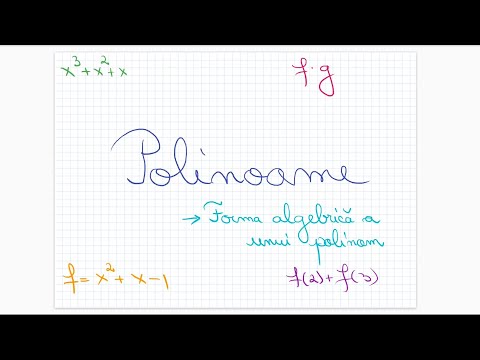 x³ + x² + x
f · g
Polinoame
→ Forma algebrică a
unui polinom
f = x² + x - 1
f(2) + f(3)